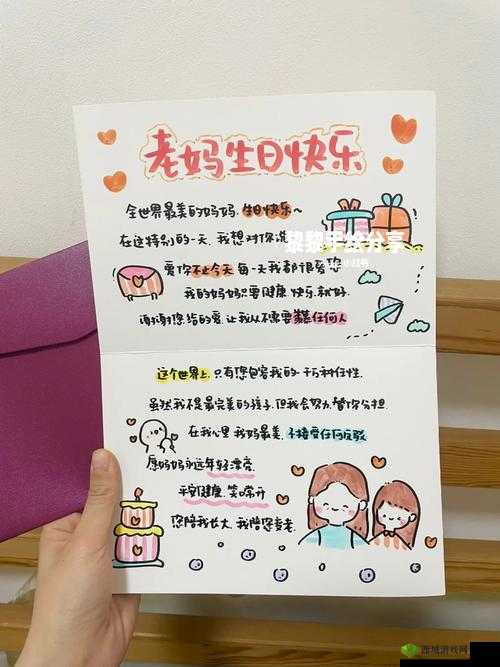 老妈生日快乐
全世界最美的妈妈,生日快乐~
在这特别的一天,我想对你说
黎黎手绘分享
小红书
爱你不止今天 每一天我都很爱您
我的妈妈只要健康 快乐就好.
谢谢您给的爱.让我从不需要羡慕任何人
这个世界上,只有您包容我的一千万种任性.
虽然我不是最完美的孩子.但我会努力替你分担.
在我心里 我妈最美.不接受任何反驳
愿妈妈永远年轻漂亮.
平安健康.笑口常开
您陪我长大,我陪您变老.
西域游戏网